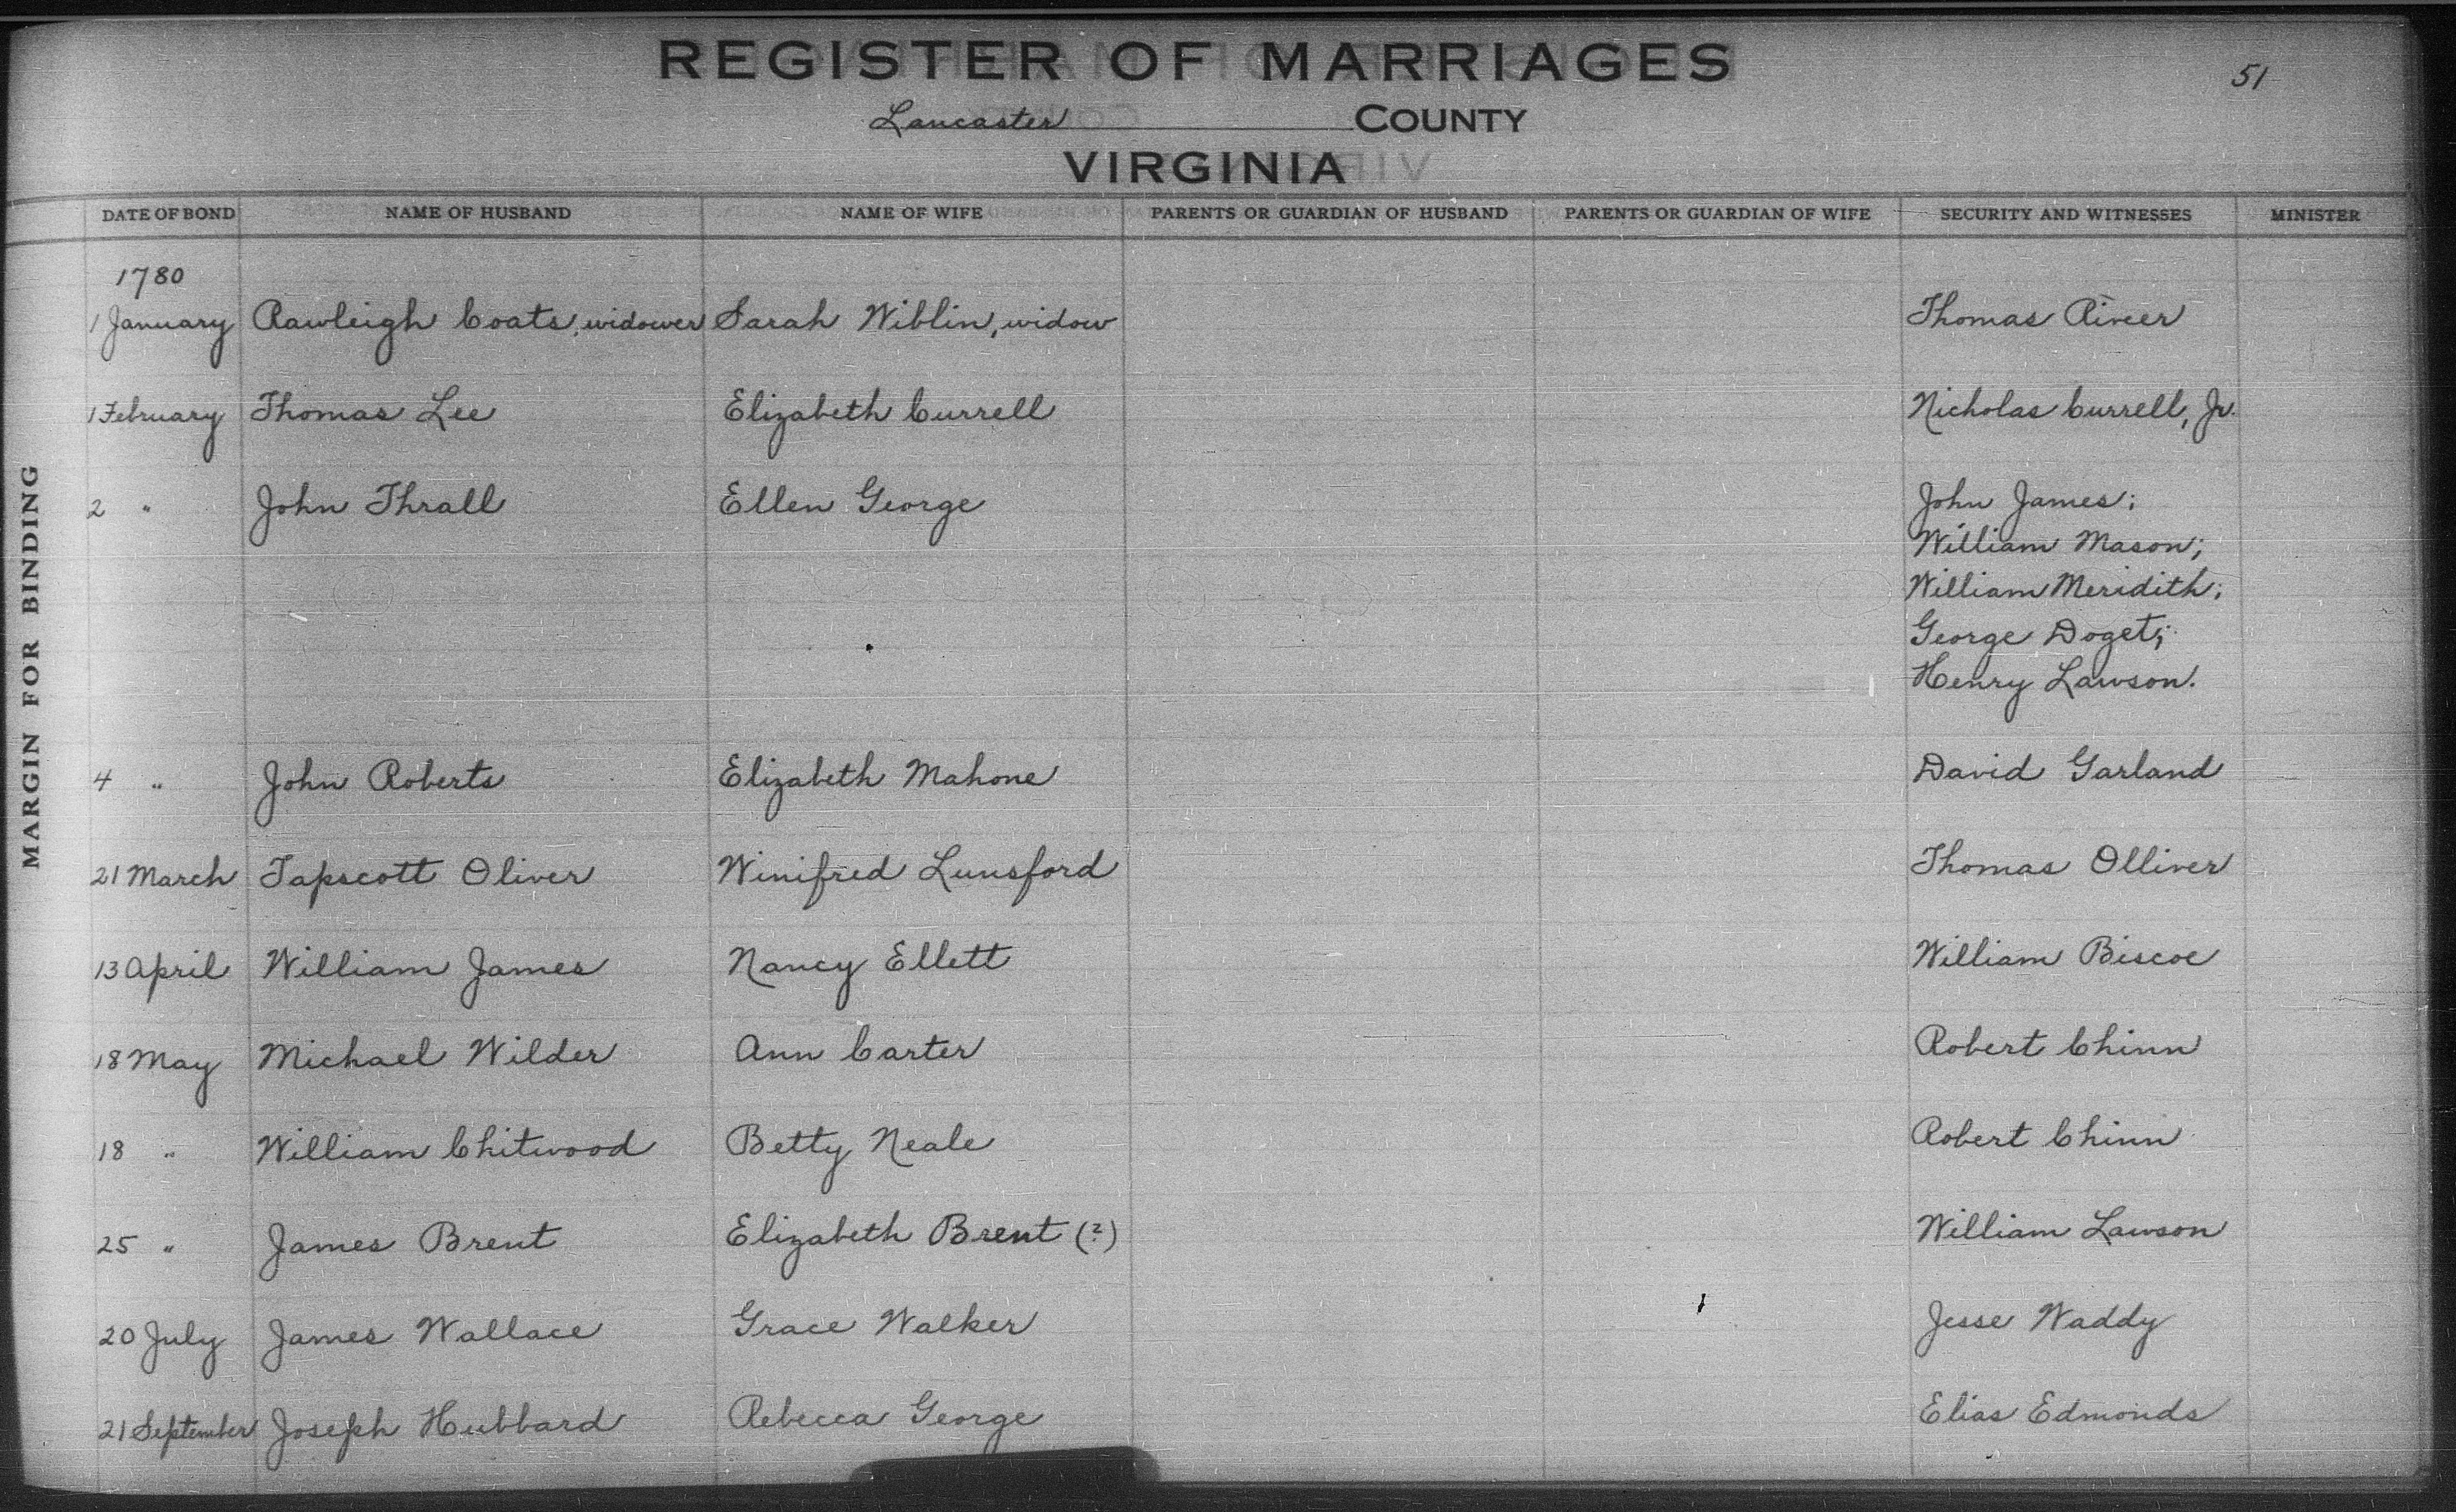 REGISTER OF MARRIAGES
51
Lancaster COUNTY
VIRGINIA
DATE OF BOND NAME OF HUSBAND NAME OF WIFE PARENTS OR GUARDIAN OF HUSBAND PARENTS OR GUARDIAN OF WIFE SECURITY AND WITNESSES MINISTER
MARGIN FOR BINDING
1780
1 January Rawleigh Coats, widower Sarah Wiblin, widow Thomas
1 February Thomas Lee Elizabeth Currell Nicholas Currell, Jr.
2 " John Thrall Ellen George John James;
William Mason;
William Meridith;
George Doget;
Henry Lawson.
4 " John Roberts Elizabeth Mahone David Garland
21 March Tapscott Oliver Winifred Lunsford Thomas Olliver
13 April William James Nancy Ellett William Biscoe
18 May Michael Wilder Ann Carter Robert Chinn
18 " William Chitwood Betty Neale Robert Chinn
25 " James Brent Elizabeth Brent (?) William Lawson
20 July James Wallace Grace Walker Jesse Waddy
21 September Joseph Hubbard Rebecca George Elias Edmonds